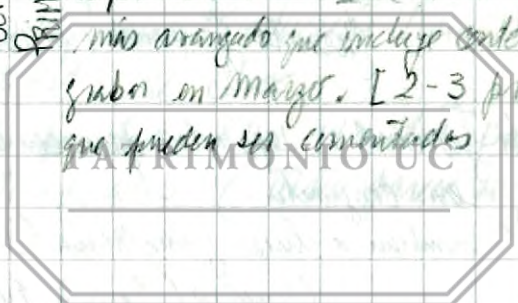 más avanzado que incluye conte
grabar en Marzo. [2-3 p
que pueden ser comentados
PATRIMONIO UC
PRIM